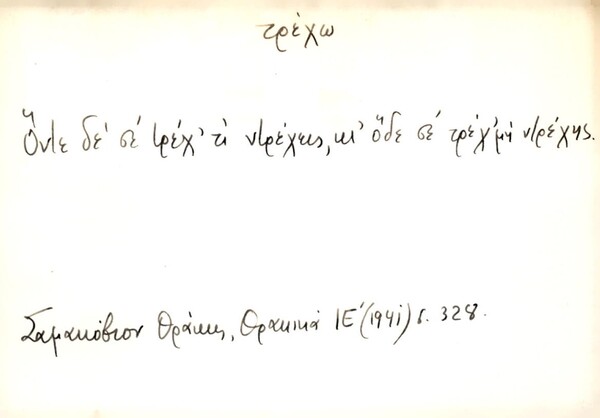 τρέχω
Ὄντε δέ σέ τρέχ' τί ντρέχεις, κι' ὅδε σέ τρέχ' μή ντρέχης.
Σαμακόβιον Θράκης, Θρακικά ΙΕ' (1941) σ. 328.